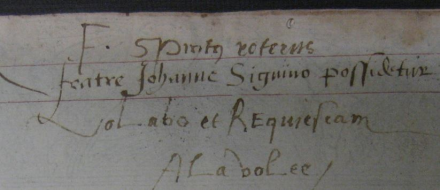 F. Spirit9 roterus
fratre Johanne Signino possidetur
Volabo et REquiescam
A La volee